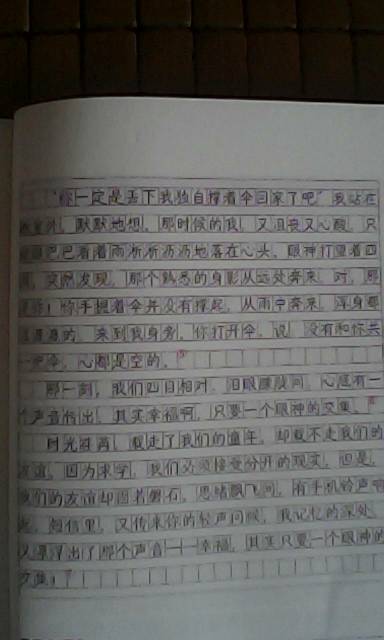 “你一定是丢下我独自撑着伞回家了吧”我站在
教室外，默默地想。那时候的我，又沮丧又心酸，只
眼巴巴看着雨淅淅沥沥地落在心头。眼神打量着四
周，突然发现，那个熟悉的身影从远处奔来，对，那
是你！你手握着伞并没有撑起，从雨中奔来，浑身都
湿漉漉的，来到我身旁，你打开伞，说，没有和你共
一把伞，心都是空的。
那一刻，我们四目相对，泪眼朦胧间，心底有一
个声音传出，其实幸福啊，只要一个眼神的交集。
时光荏苒，载走了我们的童年，却载不走我们的
友谊。因为求学，我们必须接受分开的现实，但是，
我们的友谊却固若磐石。思绪飘飞间，有手机铃声响
起，短信里，又传来你的轻声问候，我记忆的深处，
又漂浮出了那个声音——幸福，其实只要一个眼神的
交集！